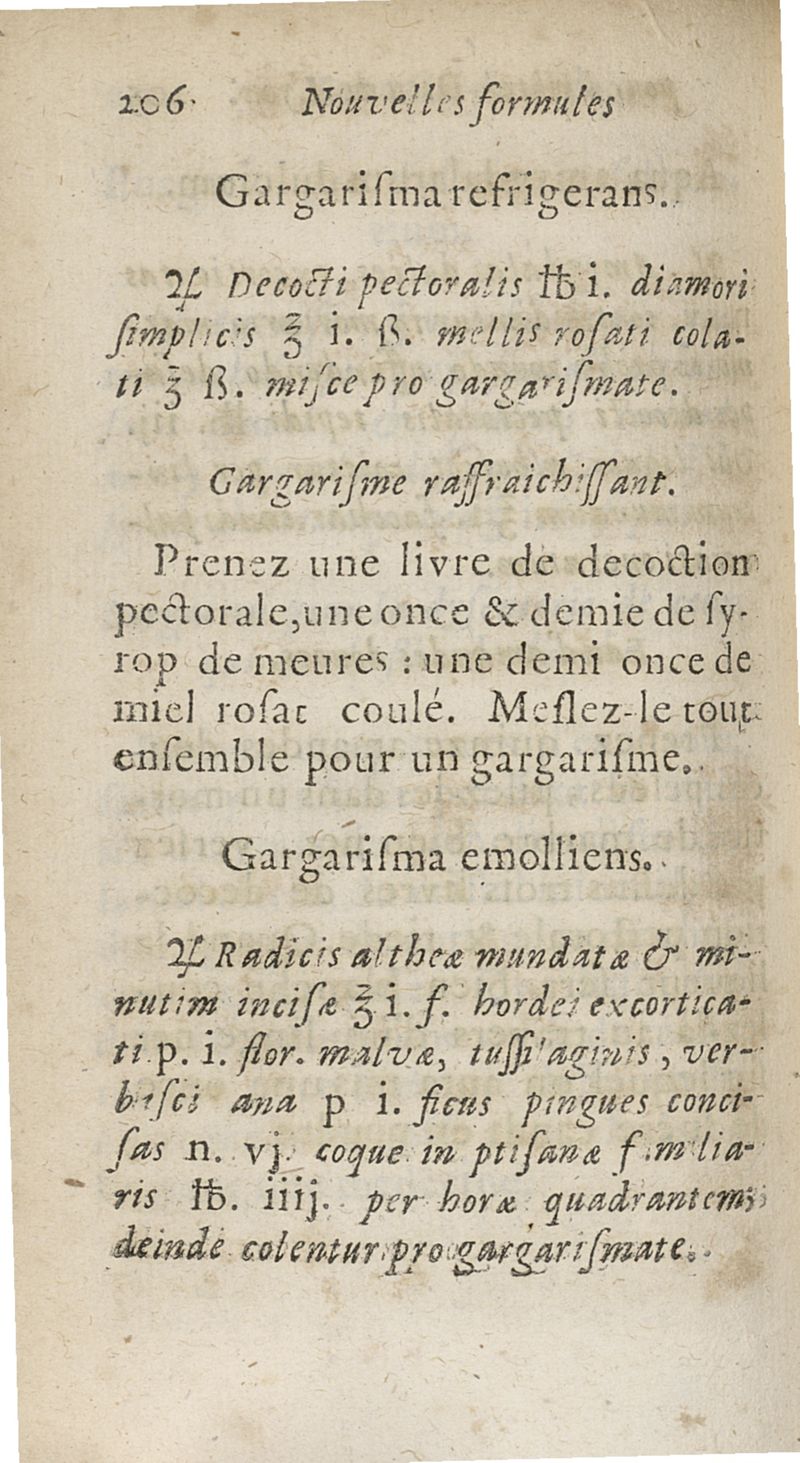 206. Nouvelles formules
Gargariſma refrigerans.
♃ Decocti pectoralis ℔ i. diamori
ſimplicis ℥ i. ß. mellis roſati cola-
ti ℥ ß. miſce pro gargariſmate.
Gargariſme raffraichiſſant.
Prenez une livre de decoction
pectorale, une once & demie de ſy-
rop de meures : une demi once de
miel roſat coulé. Meſlez-le tout
enſemble pour un gargariſme.
Gargariſma emolliens.
♃ Radicis altheæ mundatæ & mi-
nutim inciſæ ℥ i. ſ. hordei excortica-
ti p. i. flor. malvæ, tuſſilaginis, ver-
baſci ana p i. ficus pingues conci-
ſas n. vj. coque in ptiſanæ familia-
ris ℔. iiij. per horæ quadrantem;
deinde colentur pro gargariſmate.